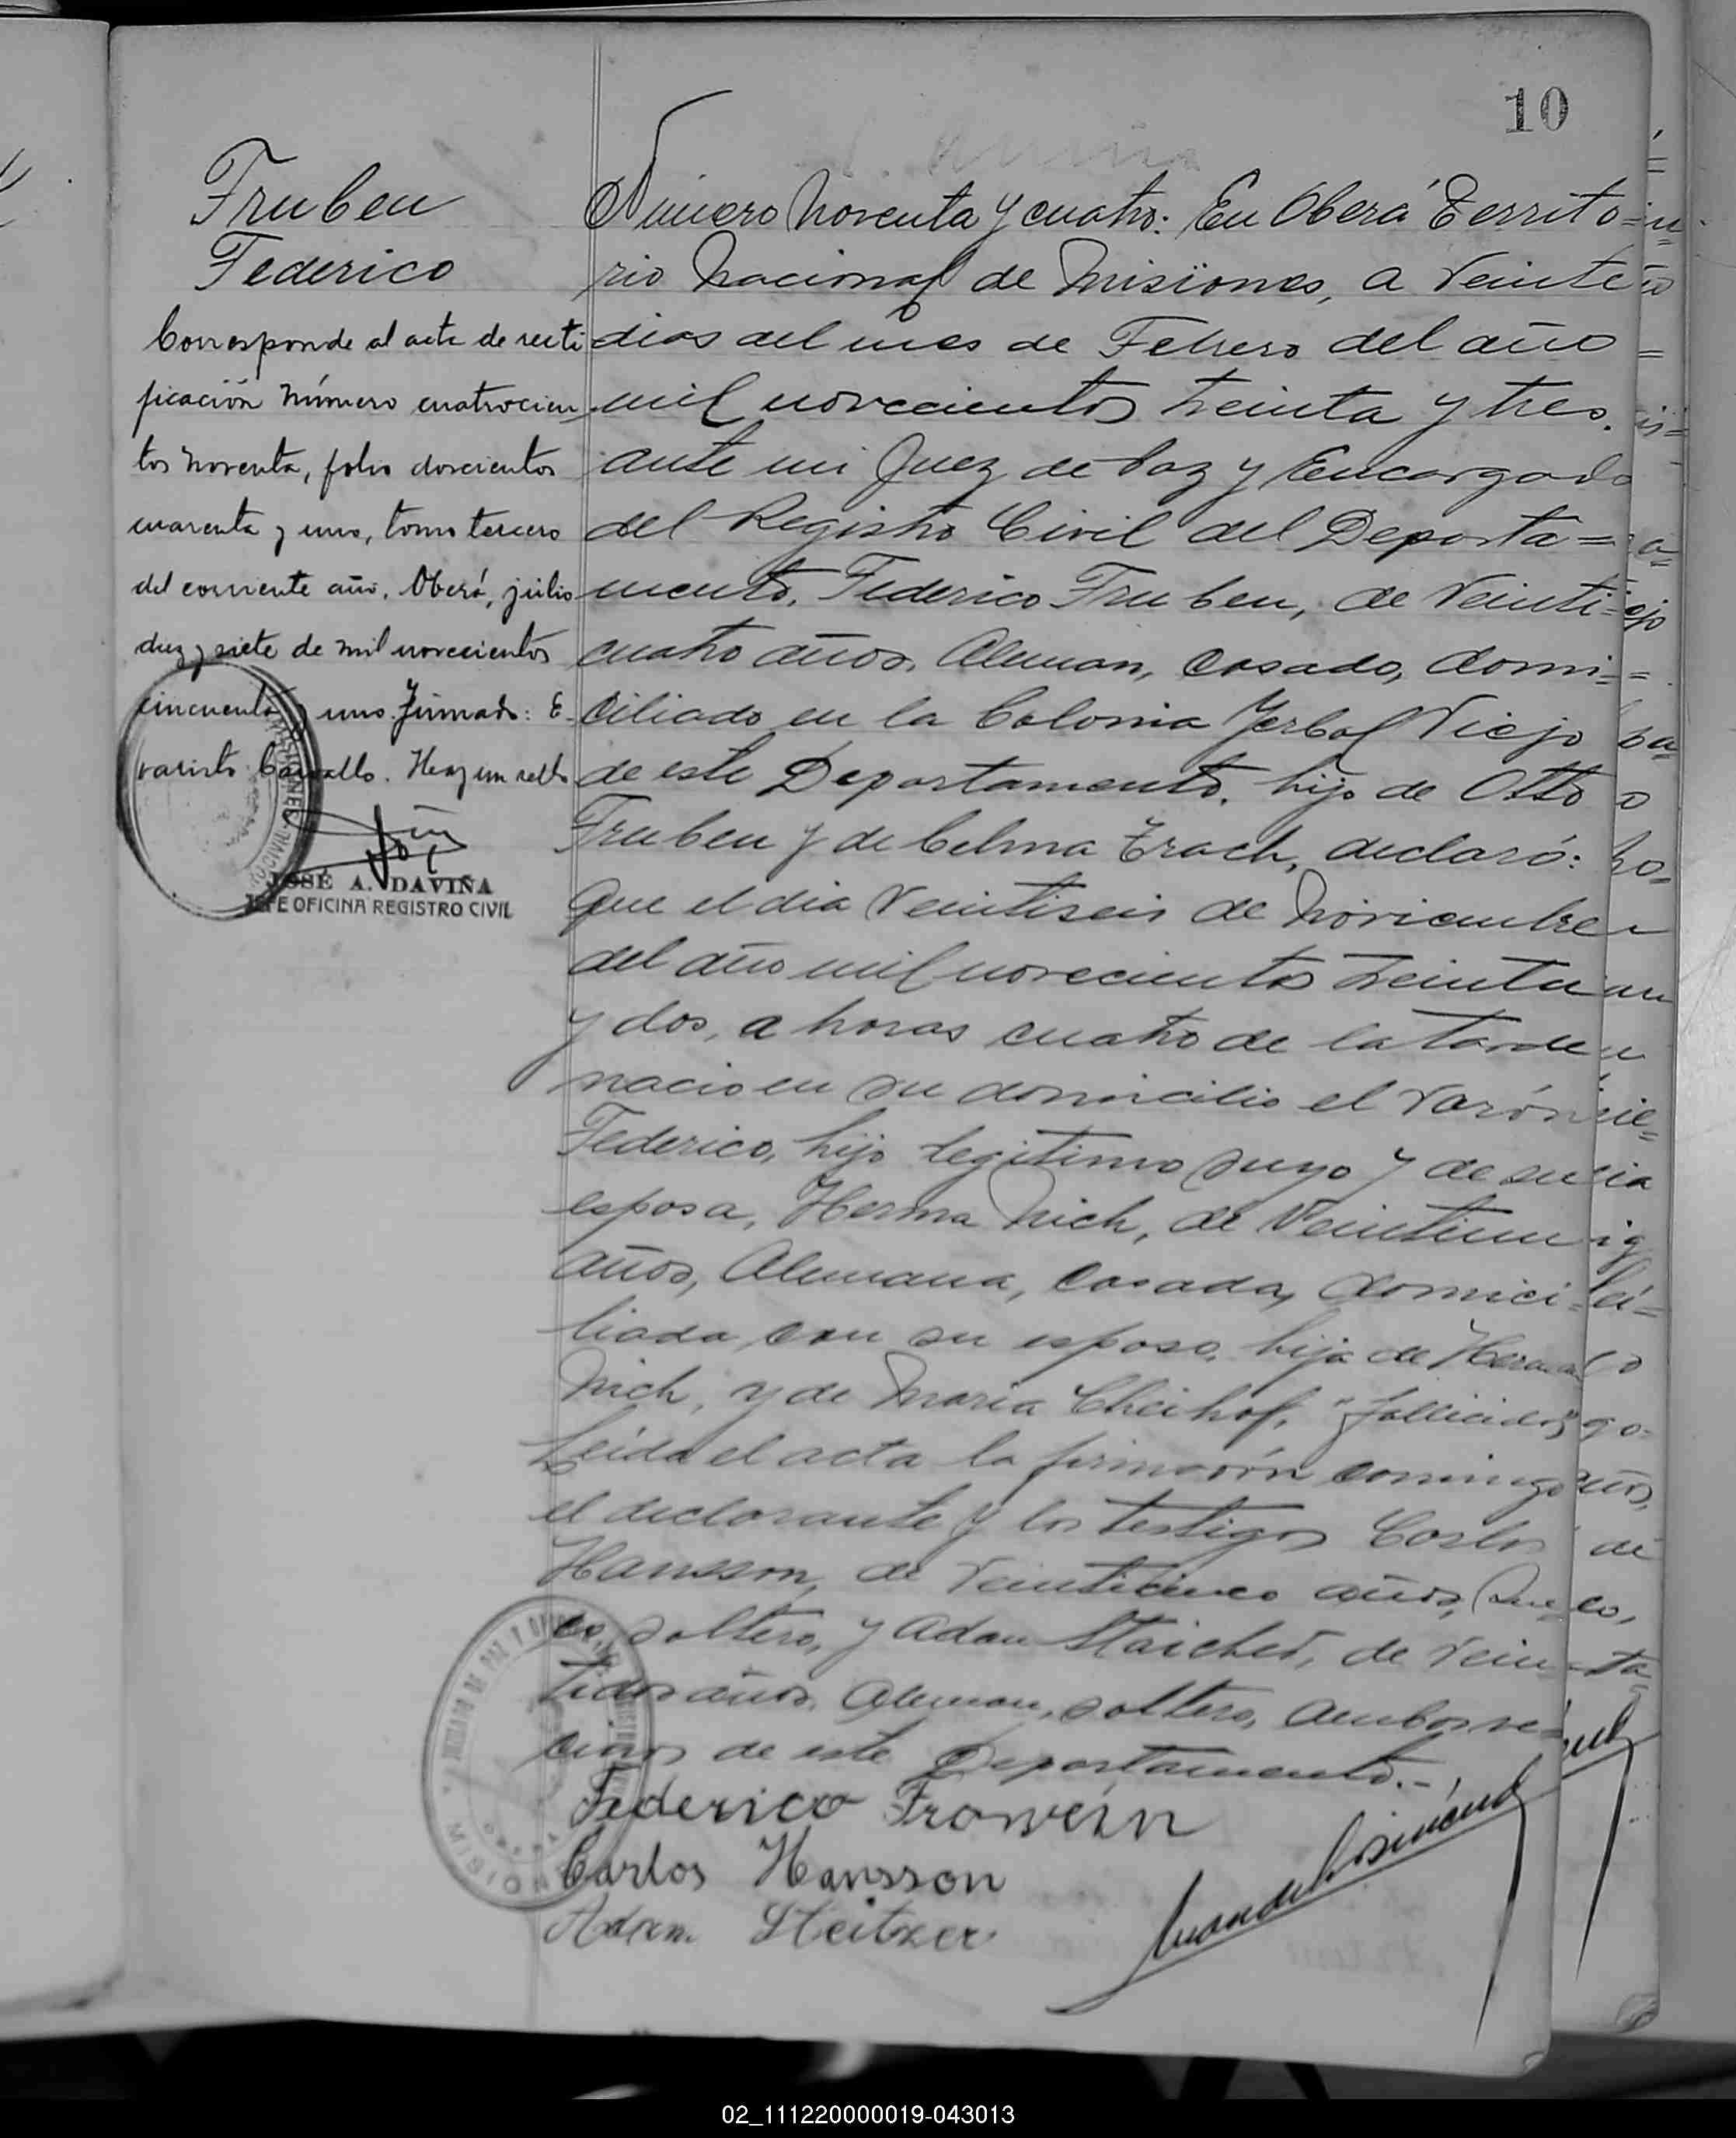 10
Fruben
Federico
Corresponde al acta de recti
ficación número cuatrocien
tos noventa, folio doscientos
cuarenta y uno, tomo tercero
del corriente año. Oberá, julio
diez y siete de mil novecientos
cincuenta y uno. Firmado: E-
varisto Carvallo. Hay un sello
JOSÉ A. DAVIÑA
JEFE OFICINA REGISTRO CIVIL
Número Noventa y cuatro: En Oberá Territo=
rio Nacional de Misiones, a Veinte
dias del mes de Febrero del año
mil novecientos treinta y tres.
ante mi Juez de Paz y Encargado
del Registro Civil del Departa=
mento, Federico Fruben, de Veinti=
cuatro años, Aleman, casado, domi=
ciliado en la Colonia Yerbal Viejo
de este Departamento, hijo de Otto
Fruben y de Celma Trach, declaró:
Que el dia Veintiseis de Noviembre
del año mil novecientos treinta
y dos, a horas cuatro de la tarde
nacio en su domicilio el Varón
Federico, hijo legitimo suyo y de su
esposa, Herma Nich, de Veintiun
años, Alemana, casada, domici=
liada con su esposo, hija de
Nich, y de Maria Cheihof, "fallecidos"
Leida el acta la firmarón conmigo
el declarante y los testigos Carlos
Hansson, de Veinticinco años, Sue
co, soltero, y Adan Staicher, de Vein=
tidos años, Aleman, soltero, ambos ve=
cinos de este Departamento.-
Federico Frowein
Carlos Hansson
Adam Steitzer
02_111220000019-043013